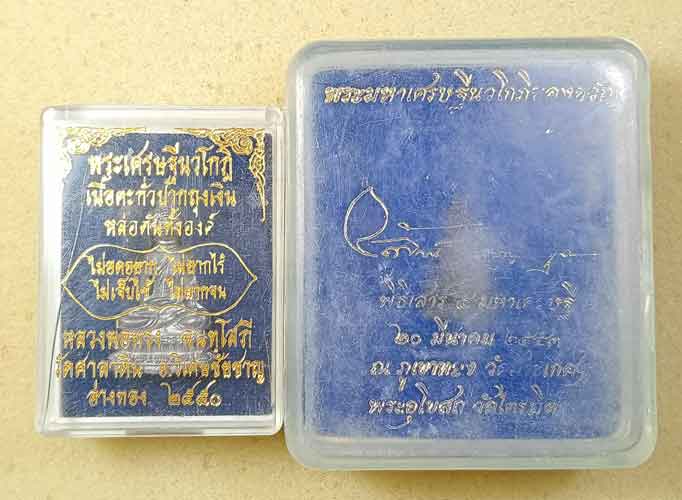 พระเศรษฐีนวโกฏิ
เนื้อตะกั่วปากถุงเงิน
หล่อตันทั้งองค์
ไม่อดอยาก ไม่ยากไร้
ไม่เจ็บไข้ ไม่ยากจน
หลวงพ่อพวง
วัดศาลาดิน อ.วิเศษชัยชาญ
อ่างทอง ๒๕๕๐
พระมหาเศรษฐีนวโกฏิ
๒๐ มีนาคม ๒๕๕๓
ณ ภูเขาทอง
พระอุโบสถ วัดไตรมิตร